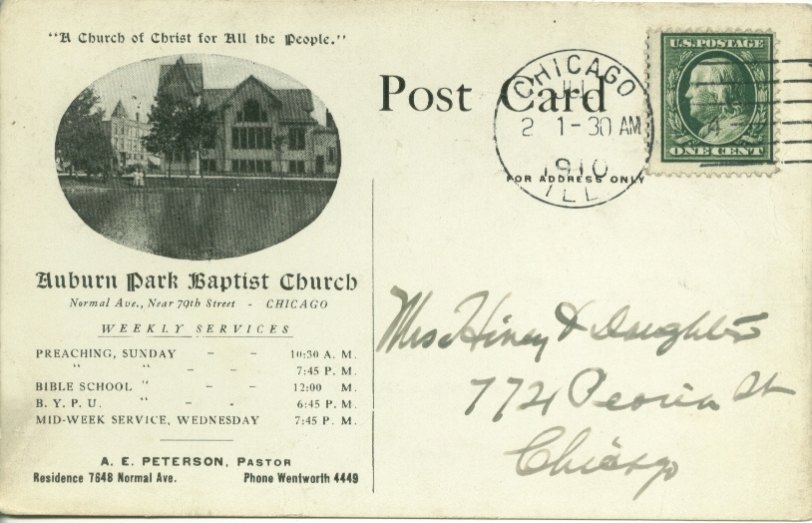 "A Church of Christ for All the People."
Auburn Park Baptist Church
Normal Ave., Near 79th Street - CHICAGO
WEEKLY SERVICES
PREACHING, SUNDAY - - 10:30 A. M.
" " - - 7:45 P. M.
BIBLE SCHOOL " 12:00 M.
B. Y. P. U. " - - 6:45 P. M.
MID-WEEK SERVICE, WEDNESDAY 7:45 P. M.
A. E. PETERSON, PASTOR
Residence 7648 Normal Ave. Phone Wentworth 4449
Post Card
FOR ADDRESS ONLY
CHICAGO
2 1-30 AM
1910
ILL
U.S. POSTAGE
ONE CENT
Mrs Hiney & Daughter
7721 Peoria St
Chicago